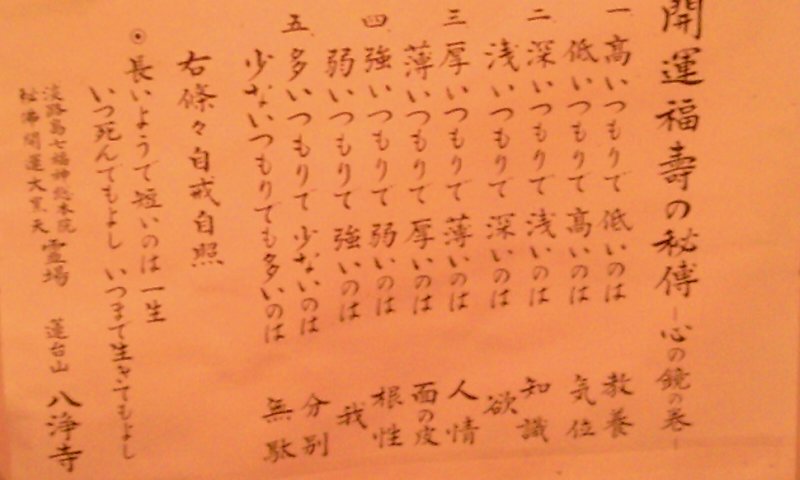 開運福壽の秘傳 ー心の鏡の巻ー
一 高いつもりで 低いのは 教養
低いつもりで 高いのは 気位
二 深いつもりで 浅いのは 知識
浅いつもりで 深いのは 欲
三 厚いつもりで 薄いのは 人情
薄いつもりで 厚いのは 面の皮
四 強いつもりで 弱いのは 根性
弱いつもりで 強いのは 我
五 多いつもりで 少ないのは 分別
少ないつもりでも多いのは 無駄
右條々自戒自照
◉ 長いようで短いのは一生
いつ死んでもよし いつまで生きてもよし
淡路島七福神総本院
秘佛開運大黒天 霊場 蓮台山 八浄寺